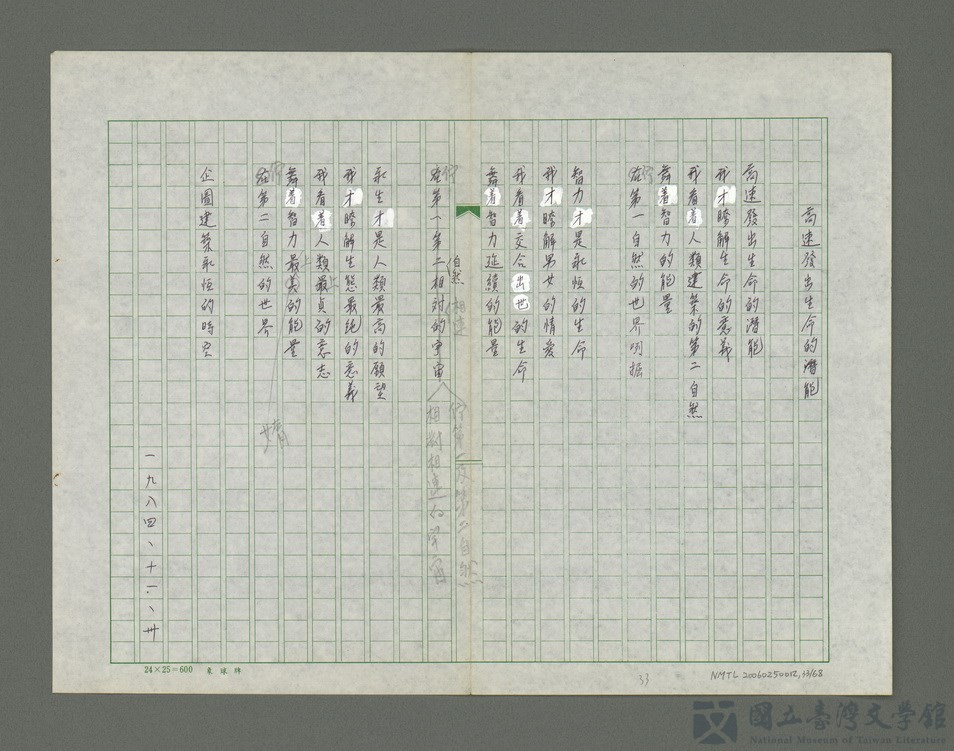 高速發出生命的潛能
高速發出生命的潛能
我才瞭解生命的意義
我看着人類建築的第二自然
舞着智力的能量
在第一自然的世界明掘
智力才是永恒的生命
我才瞭解男女的情愛
我看着交合出世的生命
舞着智力延續的能量
自然 相連
在第一第二相対的宇宙
第一及第二自然
相對相連的宇宙
永生才是人類最高的願望
我才瞭解生態最純的意義
我看着人類最貞的意志
舞着智力最美的能量
在第二自然的世界
企圖建築永恒的時空
一九八四、十一、卅
24×25=600 東球牌
33
NMTL 20060250012, 33/68
國立臺灣文學館
National Museum of Taiwan Literature